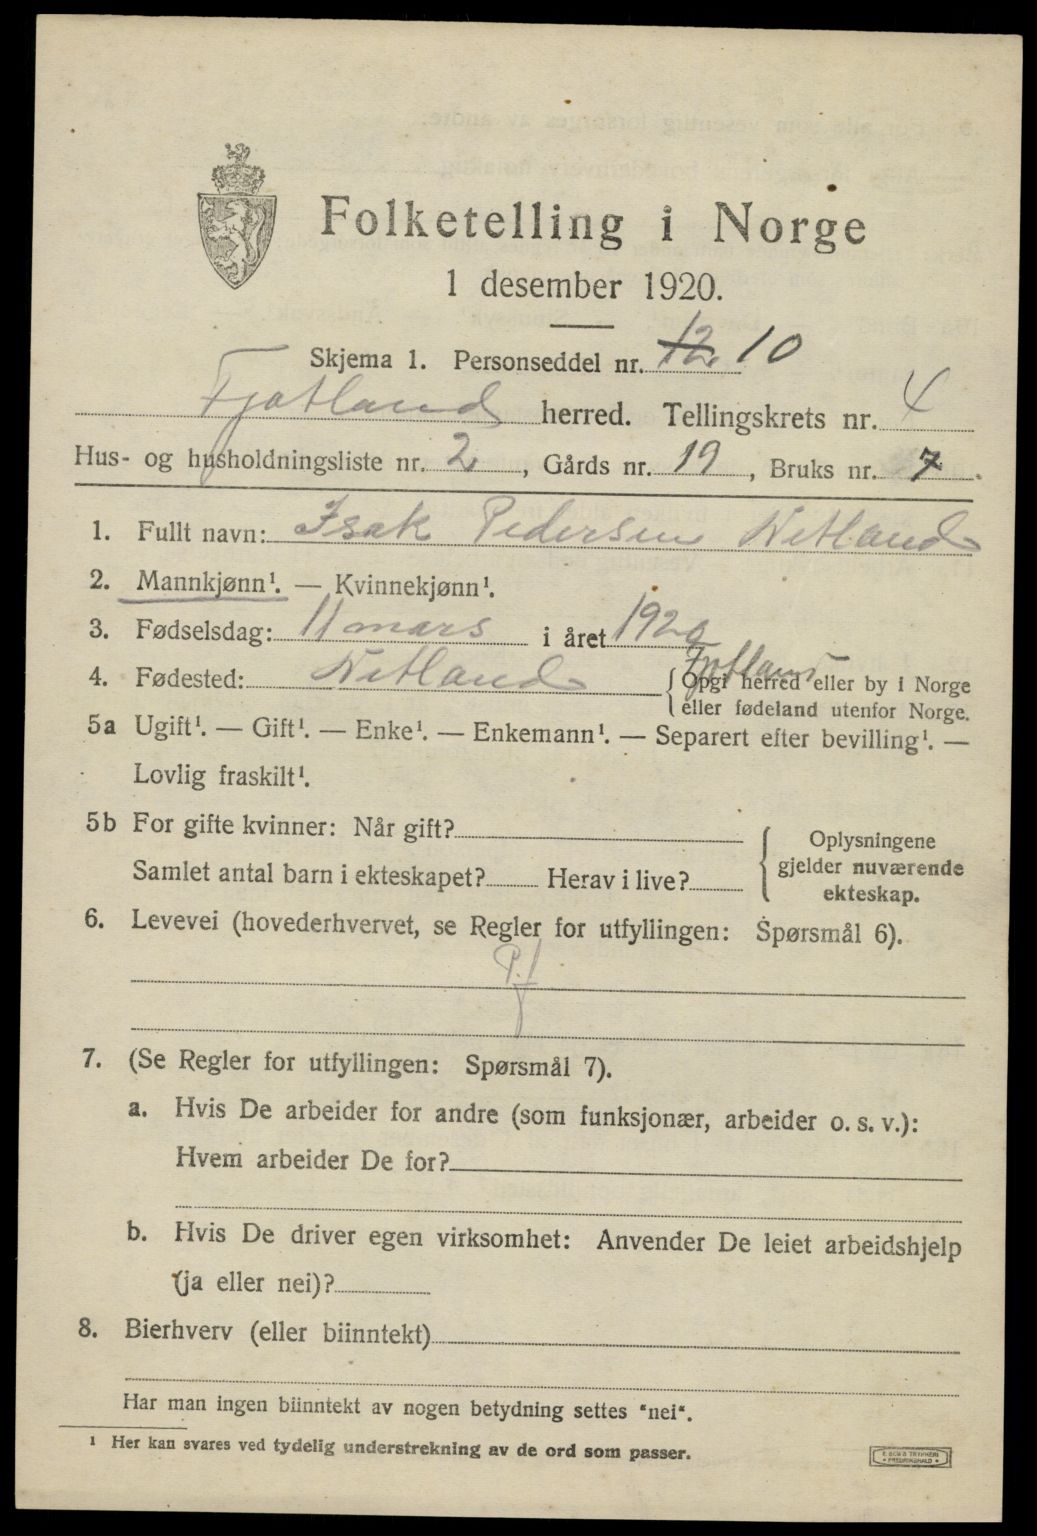 Folketelling i Norge
1 desember 1920.
Skjema 1. Personseddel nr. 12 10
Fjotland herred. Tellingskrets nr. 4
Hus- og husholdningsliste nr. 2, Gårds nr. 19, Bruks nr. 7.
1. Fullt navn: Isak Pedersen Netland
2. Mannkjønn¹. — Kvinnekjønn¹.
3. Fødselsdag: 11 mars i året 1920
4. Fødested: Netland Fjotland { Opgi herred eller by i Norge
eller fødeland utenfor Norge.
5a Ugift¹. — Gift¹. — Enke¹. — Enkemann¹. — Separert efter bevilling¹. —
Lovlig fraskilt¹.
5b For gifte kvinner: Når gift? { Oplysningene
gjelder nuværende
Samlet antal barn i ekteskapet? Herav i live?
ekteskap.
6. Levevei (hovederhvervet, se Regler for utfyllingen: Spørsmål 6).
P.f
7. (Se Regler for utfyllingen: Spørsmål 7).
a. Hvis De arbeider for andre (som funksjonær, arbeider o. s. v.):
Hvem arbeider De for?
b. Hvis De driver egen virksomhet: Anvender De leiet arbeidshjelp
(ja eller nei)?
8. Bierhverv (eller biinntekt)
Har man ingen biinntekt av nogen betydning settes "nei".
¹ Her kan svares ved tydelig understrekning av de ord som passer.